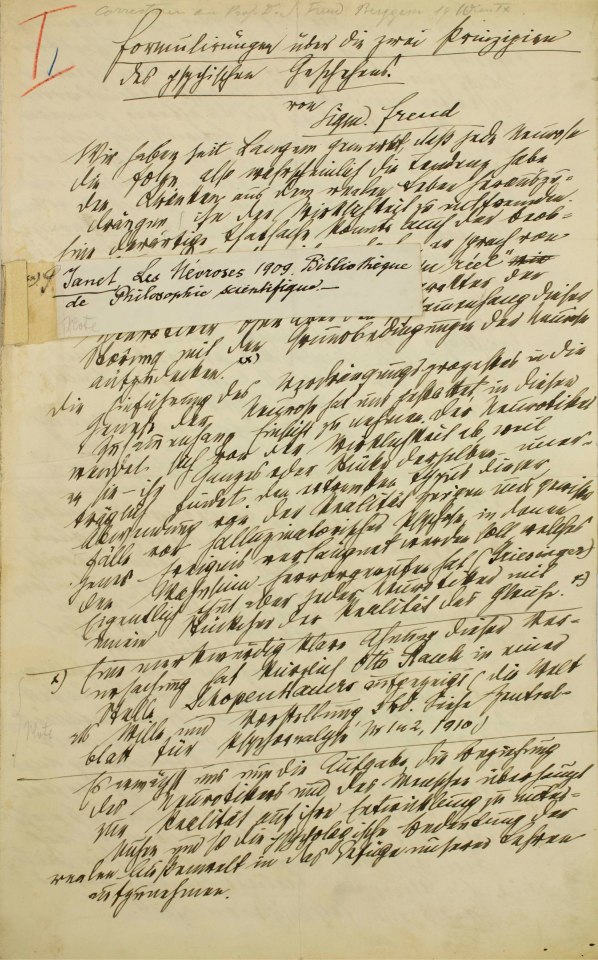 Correctur an Prof. Dr. Freud Berggasse 19 Wien IX
I,
Formulirungen über die zwei Prinzipien
des psychischen Geschehens.
von
Sigm. Freud
Wir haben seit Langem gemerkt daß jede Neurose
die Folge, also wahrscheinlich die Tendenz habe
den Kranken aus dem realen Leben herauszu-
drängen, ihn der Wirklichkeit zu entfremden.
Eine derartige Thatsache konnte auch der Beob-
er sprach von
Janet, Les Névroses 1909. Bibliothèque
de Philosophie scientifique.—
Note
Zusammenhang dieser
Störung mit den Grundbedingungen der Neurose
aufzudecken. xx)
Die Einführung des Verdrängungsprozesses in die
Genese der Neurose hat uns gestattet in diesen
Zusammenhang Einsicht zu nehmen. Der Neurotiker
wendet sich von der Wirklichkeit ab, weil
er sie – ihr Ganzes oder Stücke derselben – uner-
träglich findet. Den extremsten Typus dieser
Abwendung von der Realität zeigen uns gewisse
Fälle von hallucinatorischer Psychose, in denen
jenes Ereignis verläugnet werden soll, welches
den Wahnsinn hervorgerufen hat (Griesinger)
Eigentlich thut aber jeder Neurotiker mit
einem Stückchen der Realität das Gleiche. x)
x) Eine merkwürdig klare Ahnung dieser Ver-
ursachung hat kürzlich Otto Rank in einer
Stelle Schopenhauers aufgezeigt (Die Welt
als Wille und Vorstellung 2. Bd. Siehe Zentral-
blatt für Psychoanalyse H 1 u 2, 1910)
Note
Es erwächst uns nun die Aufgabe, die Beziehung
des Neurotikers und des Menschen überhaupt
zur Realität auf ihre Entwicklung zu unter-
suchen und so die psychologische Bedeutung der
realen Außenwelt in das Gefüge unserer Lehren
aufzunehmen.